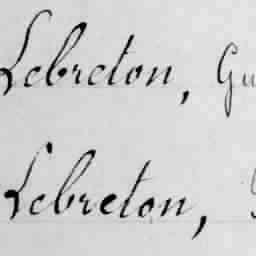 Lebreton, Gu
Lebreton,